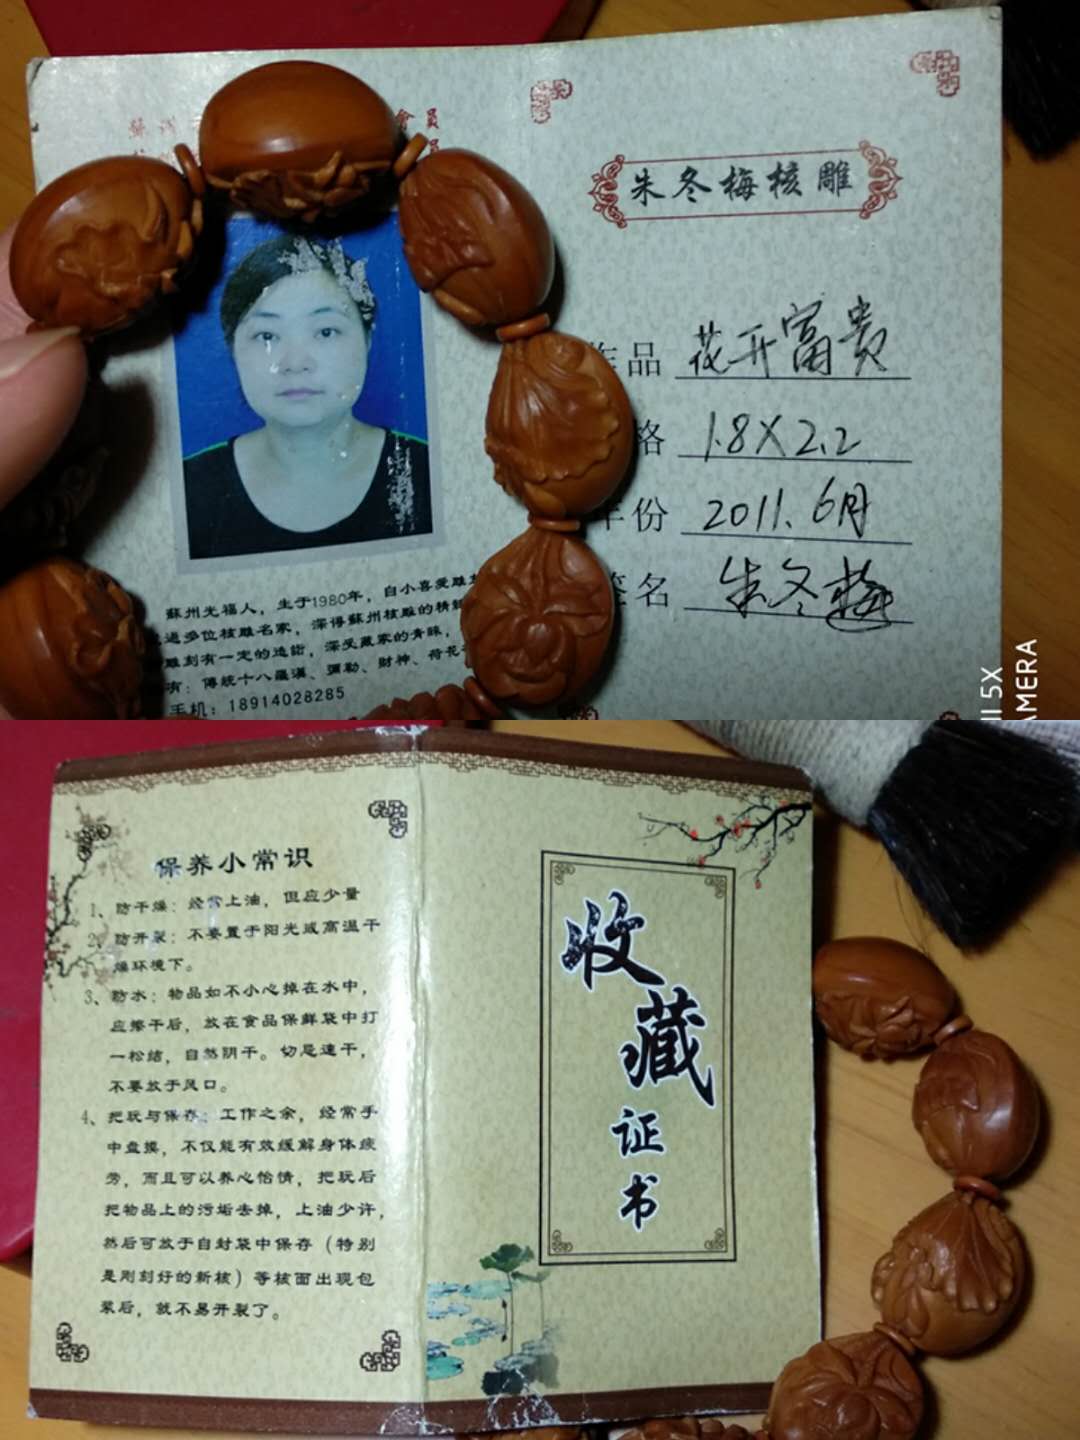 會員
朱冬梅核雕
作品 花开富贵
格 1.8X2.2
年份 2011.6月
签名 朱冬梅
蘇州光福人，生于1980年，自小喜爱雕
過多位核雕名家，深得蘇州核雕的精
雕刻有一定的造詣，深受藏家的青睐，
有：傳統十八羅漢、彌勒、财神、荷花
手机：18914028285
II 5X
AMERA
保养小常识
1、防干燥：经常上油，但应少量
2、防开裂：不要置于阳光或高温干
燥环境下。
3、防水：物品如不小心掉在水中，
应擦干后，放在食品保鲜袋中打
一松结，自然阴干。切忌速干，
不要放于风口。
4、把玩与保存：工作之余，经常手
中盘摸，不仅能有效缓解身体疲
劳，而且可以养心怡情，把玩后
把物品上的污垢去掉，上油少许，
然后可放于自封袋中保存（特别
是刚刻好的新核）等核面出现包
浆后，就不易开裂了。
收藏证书